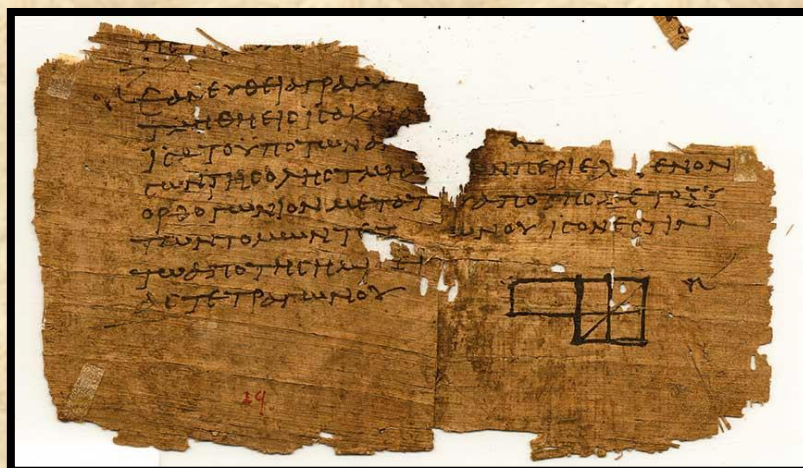 ΕΑΝ ΕΥΘΕΙΑ ΓΡΑΜ
ΤΜΗΘΗ ΕΙϹ ΙϹΑ Κ
ΙϹΑ ΤΟ ΥΠΟ ΤΩΝ Α
ϹΩΝ ΤΗϹ ΟΛΗϹ ΤΜΗ ΩΝ ΠΕΡΙΕΧ ΕΝΟΝ
ΟΡΘΟΓΩΝΙΟΝ ΜΕΤΑ ΤΟΥ ΑΠΟ ΤΗϹ ΜΕΤΟΞΥ
ΤΩΝ ΤΟΜΩΝ ΤΕΤ ΩΝΟΥ ΙϹΟΝ ΕϹΤΙΝ
ΤΩ ΑΠΟ ΤΗϹ ΗΜΙϹΕΙ
ΑϹ ΤΕΤΡΑΓΩΝΟΥ
29.